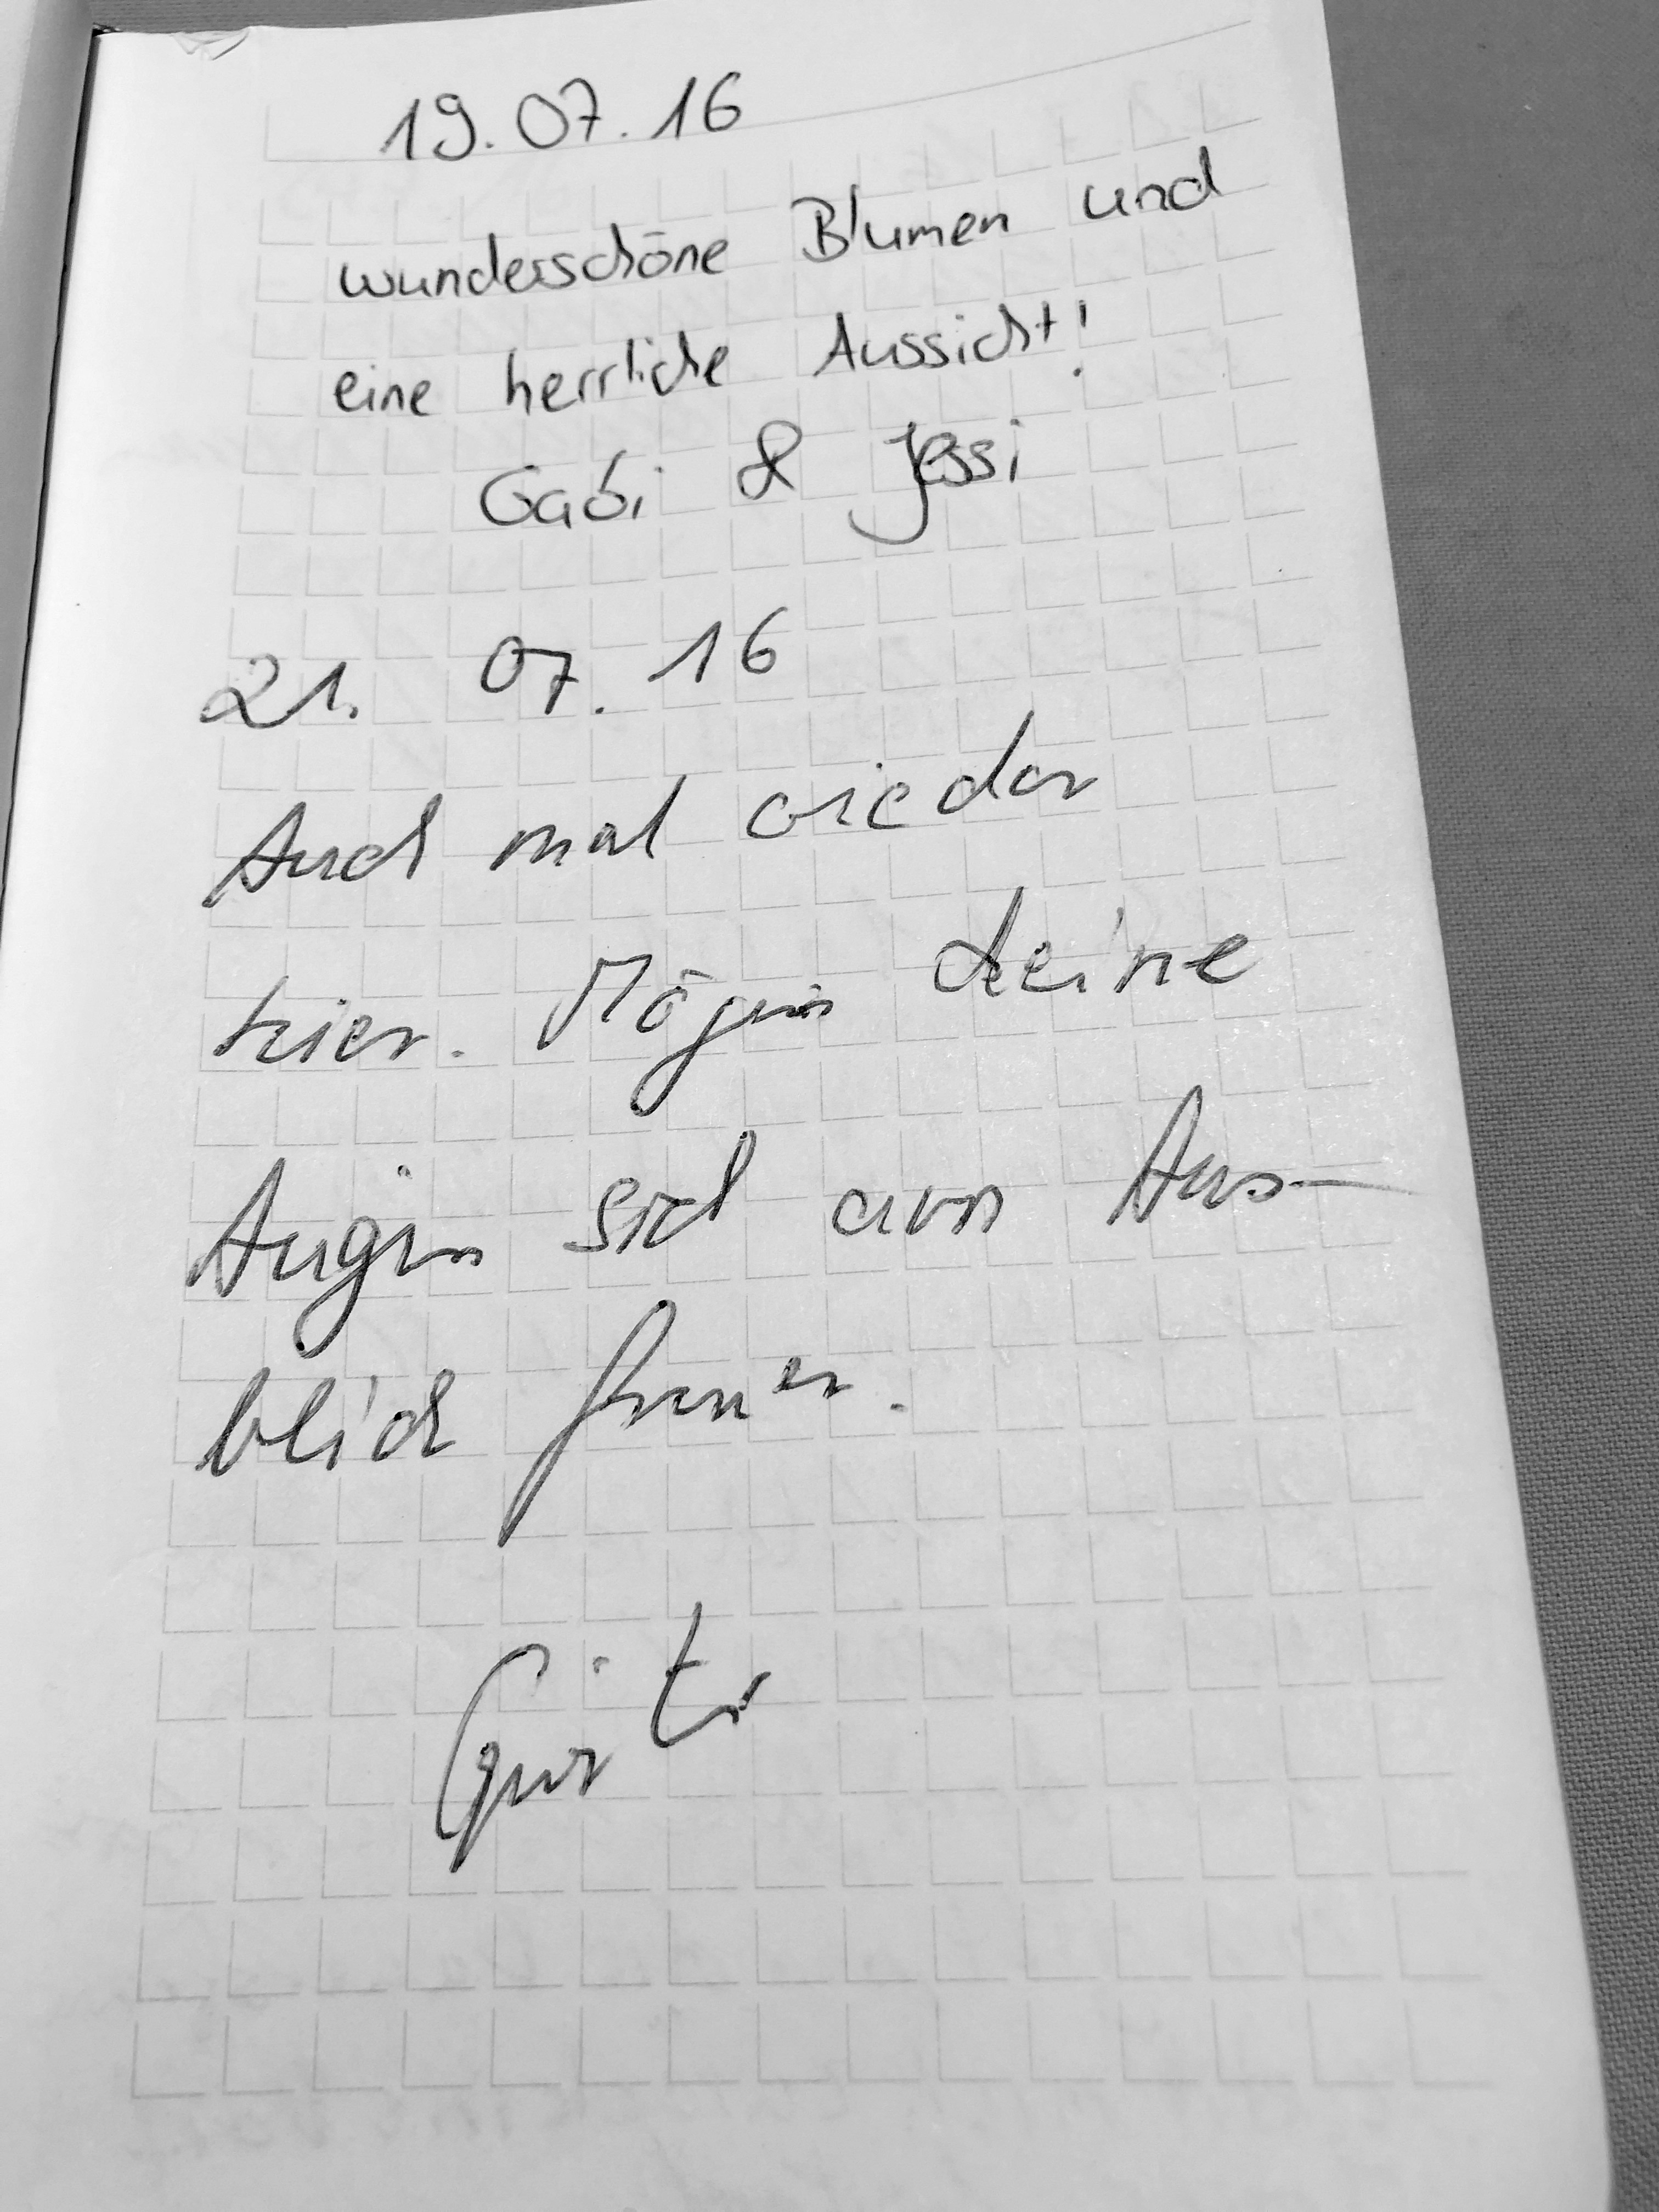 19.07.16
wunderschöne Blumen und
eine herrliche Aussicht!
Gabi & Jessi
21. 07. 16
Auch mal wieder
hier. Mögen deine
Augen sich am Aus-
blick freuen.